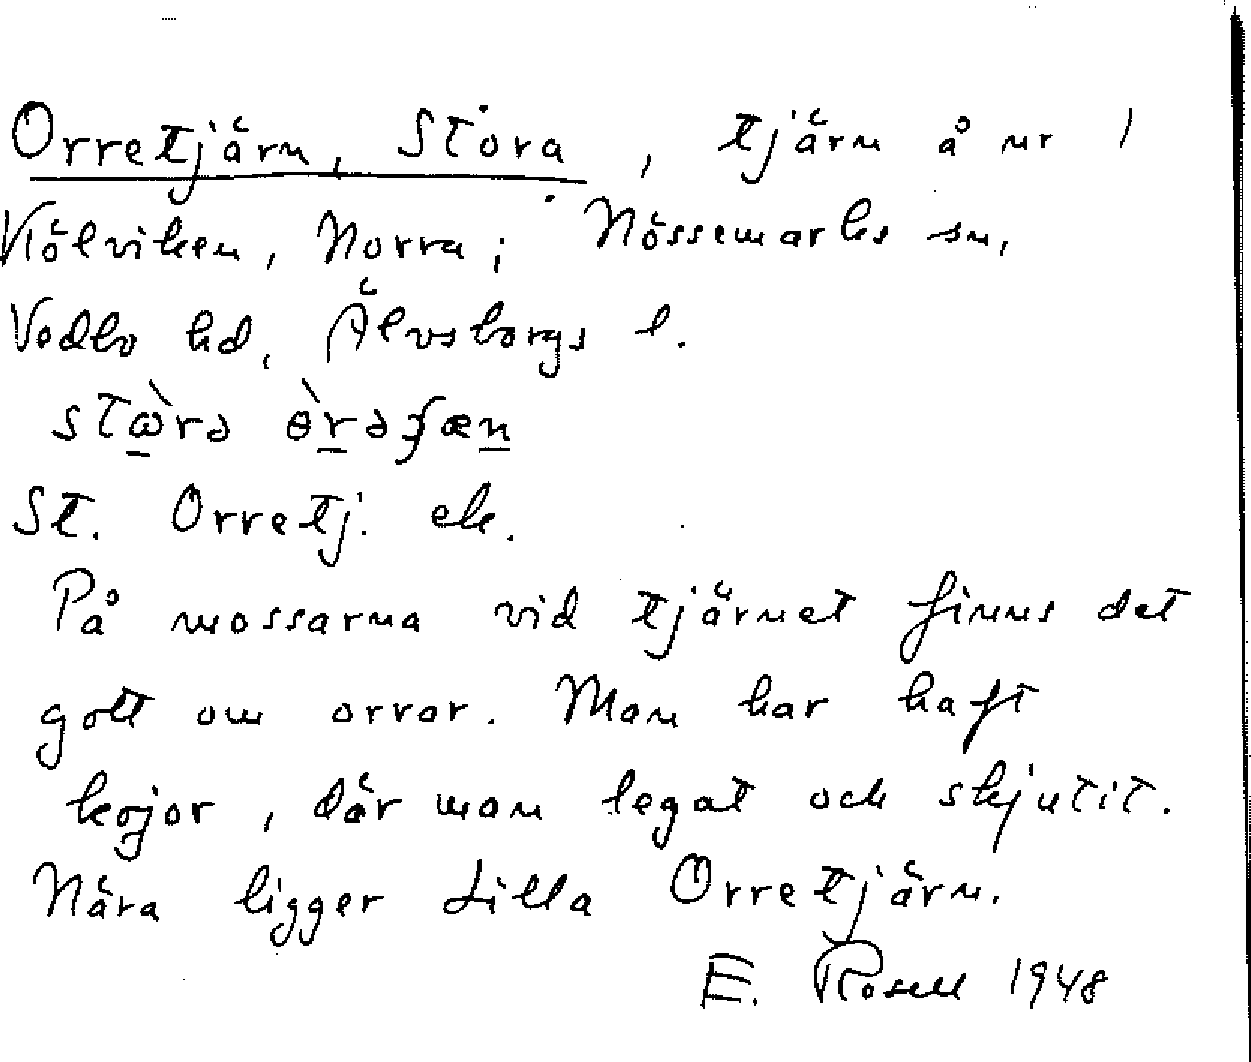 Orretjärn, Stora, tjärn å nr 1
Kölviken, Norra; Nössemarks sn,
Vedbo hd, Älvsborgs l.
stɷ̀rə ɵ̀rəʃæn
St. Orretj. ek.
På mossarna vid tjärnet finns det
gott om orrar. Man har haft
kojor, där man legat och skjutit.
Nära ligger Lilla Orretjärn.
E. Rosell 1948